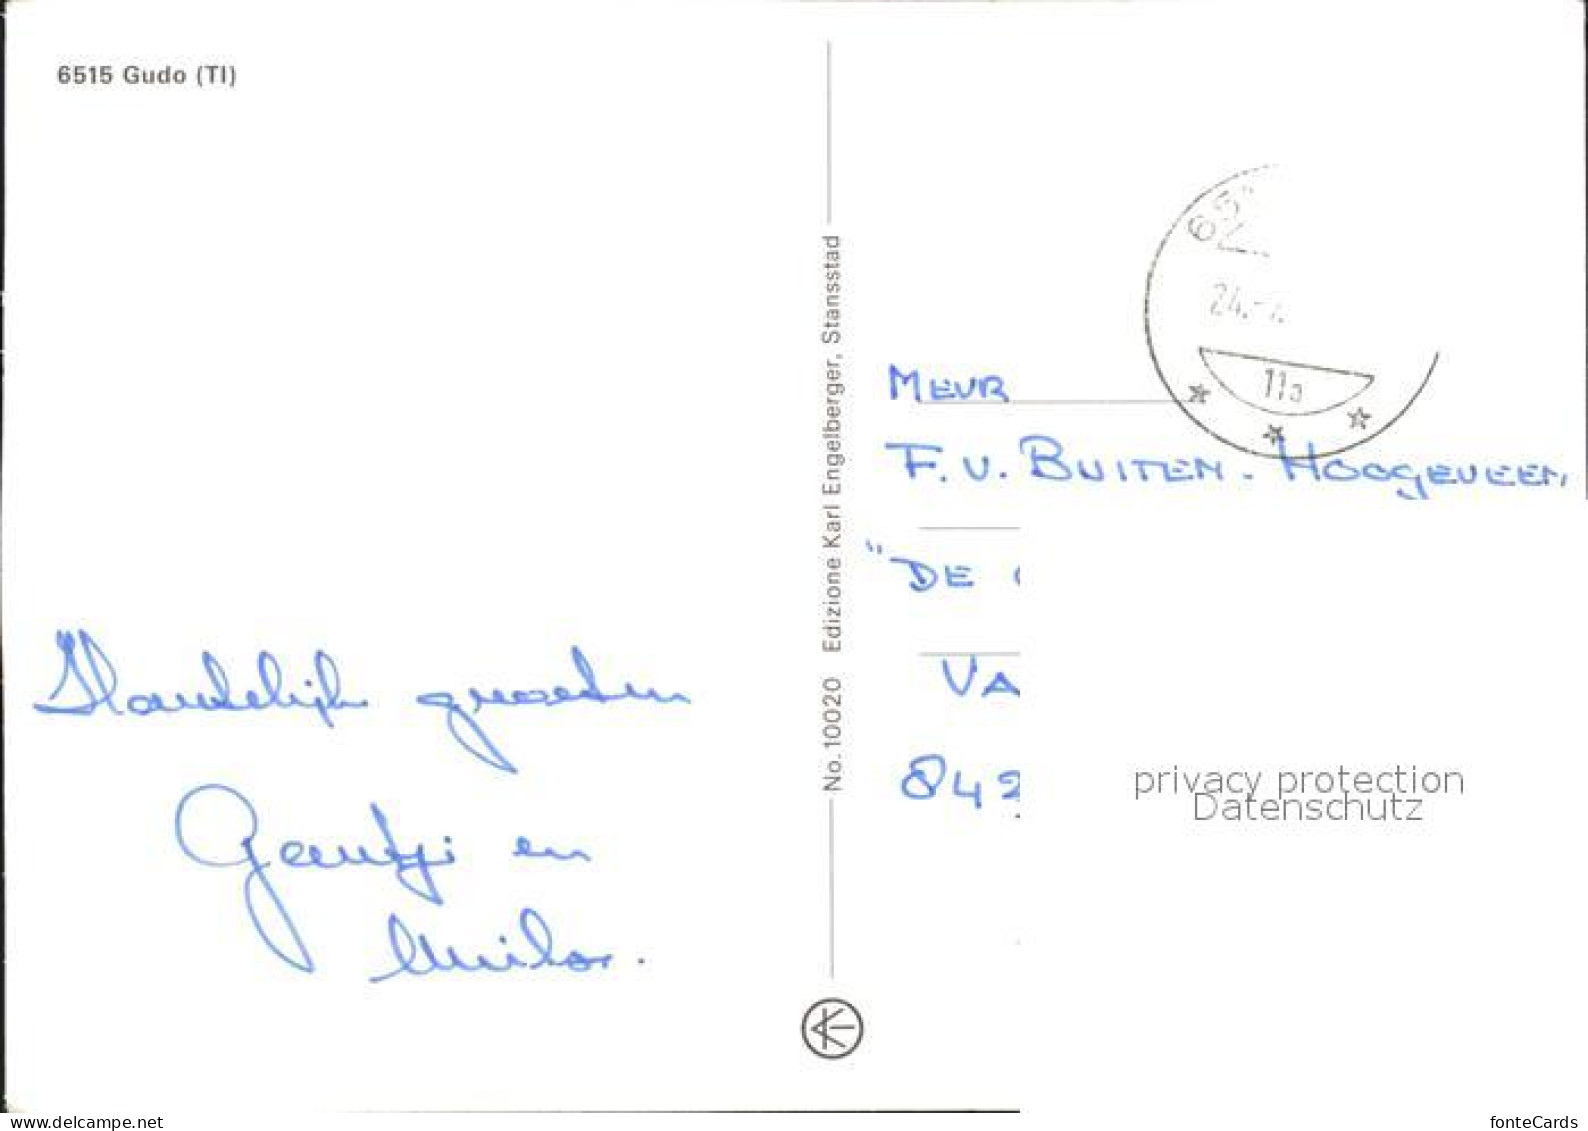 6515 Gudo (TI)
Hartelijk groeten
Gerutji en
No. 10020 Edizione Karl Engelberger, Stansstad
65
24.-7.
11a
MEVR
F.V. BUITEN - HOOGEVEEN,
"DE
VA
842
privacy protection
Datenschutz
www.delcampe.net
fonteCards